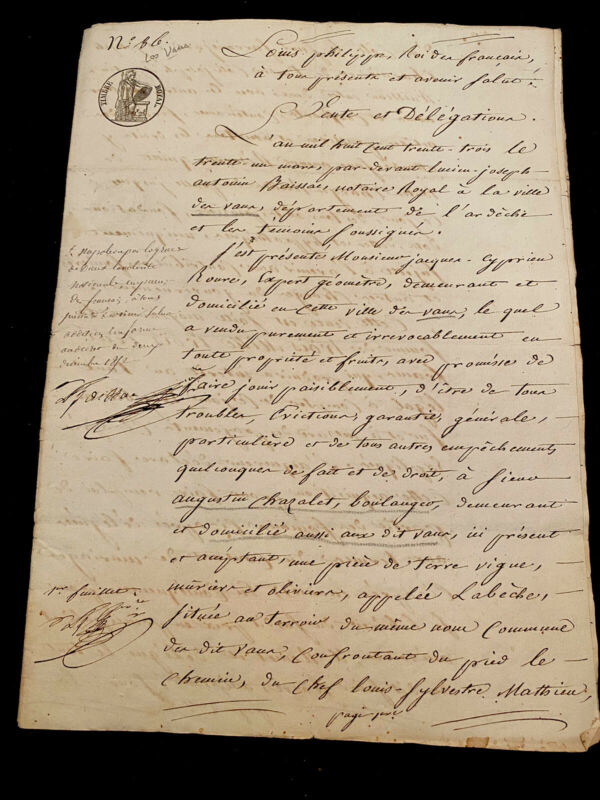 N.° 86.
Les Vans
TIMBRE ROYAL
Louis philippe, Roi des français,
à tous présents et avenir Salut.
Vente et Délégations.
L'an mil huit cent trente-trois le
trente-un mars, par-devant lucien-joseph-
antonin Baissac, notaire Royal à la ville
des vans, département de l'ardèche
et les témoins soussignés.
S'est présenté Monsieur jacques-Cyprien
Roure, Expert géomètre, demeurant et
domicilié en cette ville des vans, le quel
a vendu purement et irrévocablement en
toute propriété et fruits, avec promesse de
faire jouir paisiblement, d'être de tous
troubles, Evictions, garantie, générale,
particulière et de tous autres empêchements
quelconques de fait et de droit, à sieur
augustin Chazalet, boulanger, demeurant
et domicilié aussi aux dit vans, ici présent
et acceptant, une pièce de terre vigne,
muriers et oliviers, appelée Labèche,
située au terroir du même nom Commune
des dit vans, confrontant du pied le
Chemin, du chef louis-Sylvestre Mathieu,
napoléon par la grace
de Dieu et la volonté
nationale, empereur
des français, à tous
présents et avenir salut
du deux
décembre 1852
1er feuillet